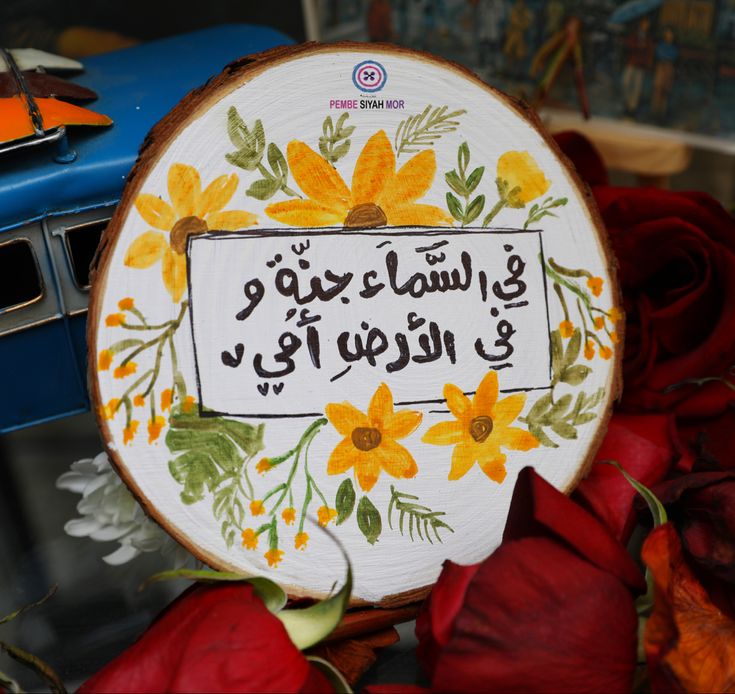 PEMBE SIYAH MOR
في السَّمَاء جنّةٍ و
في الأرضِ أمّي